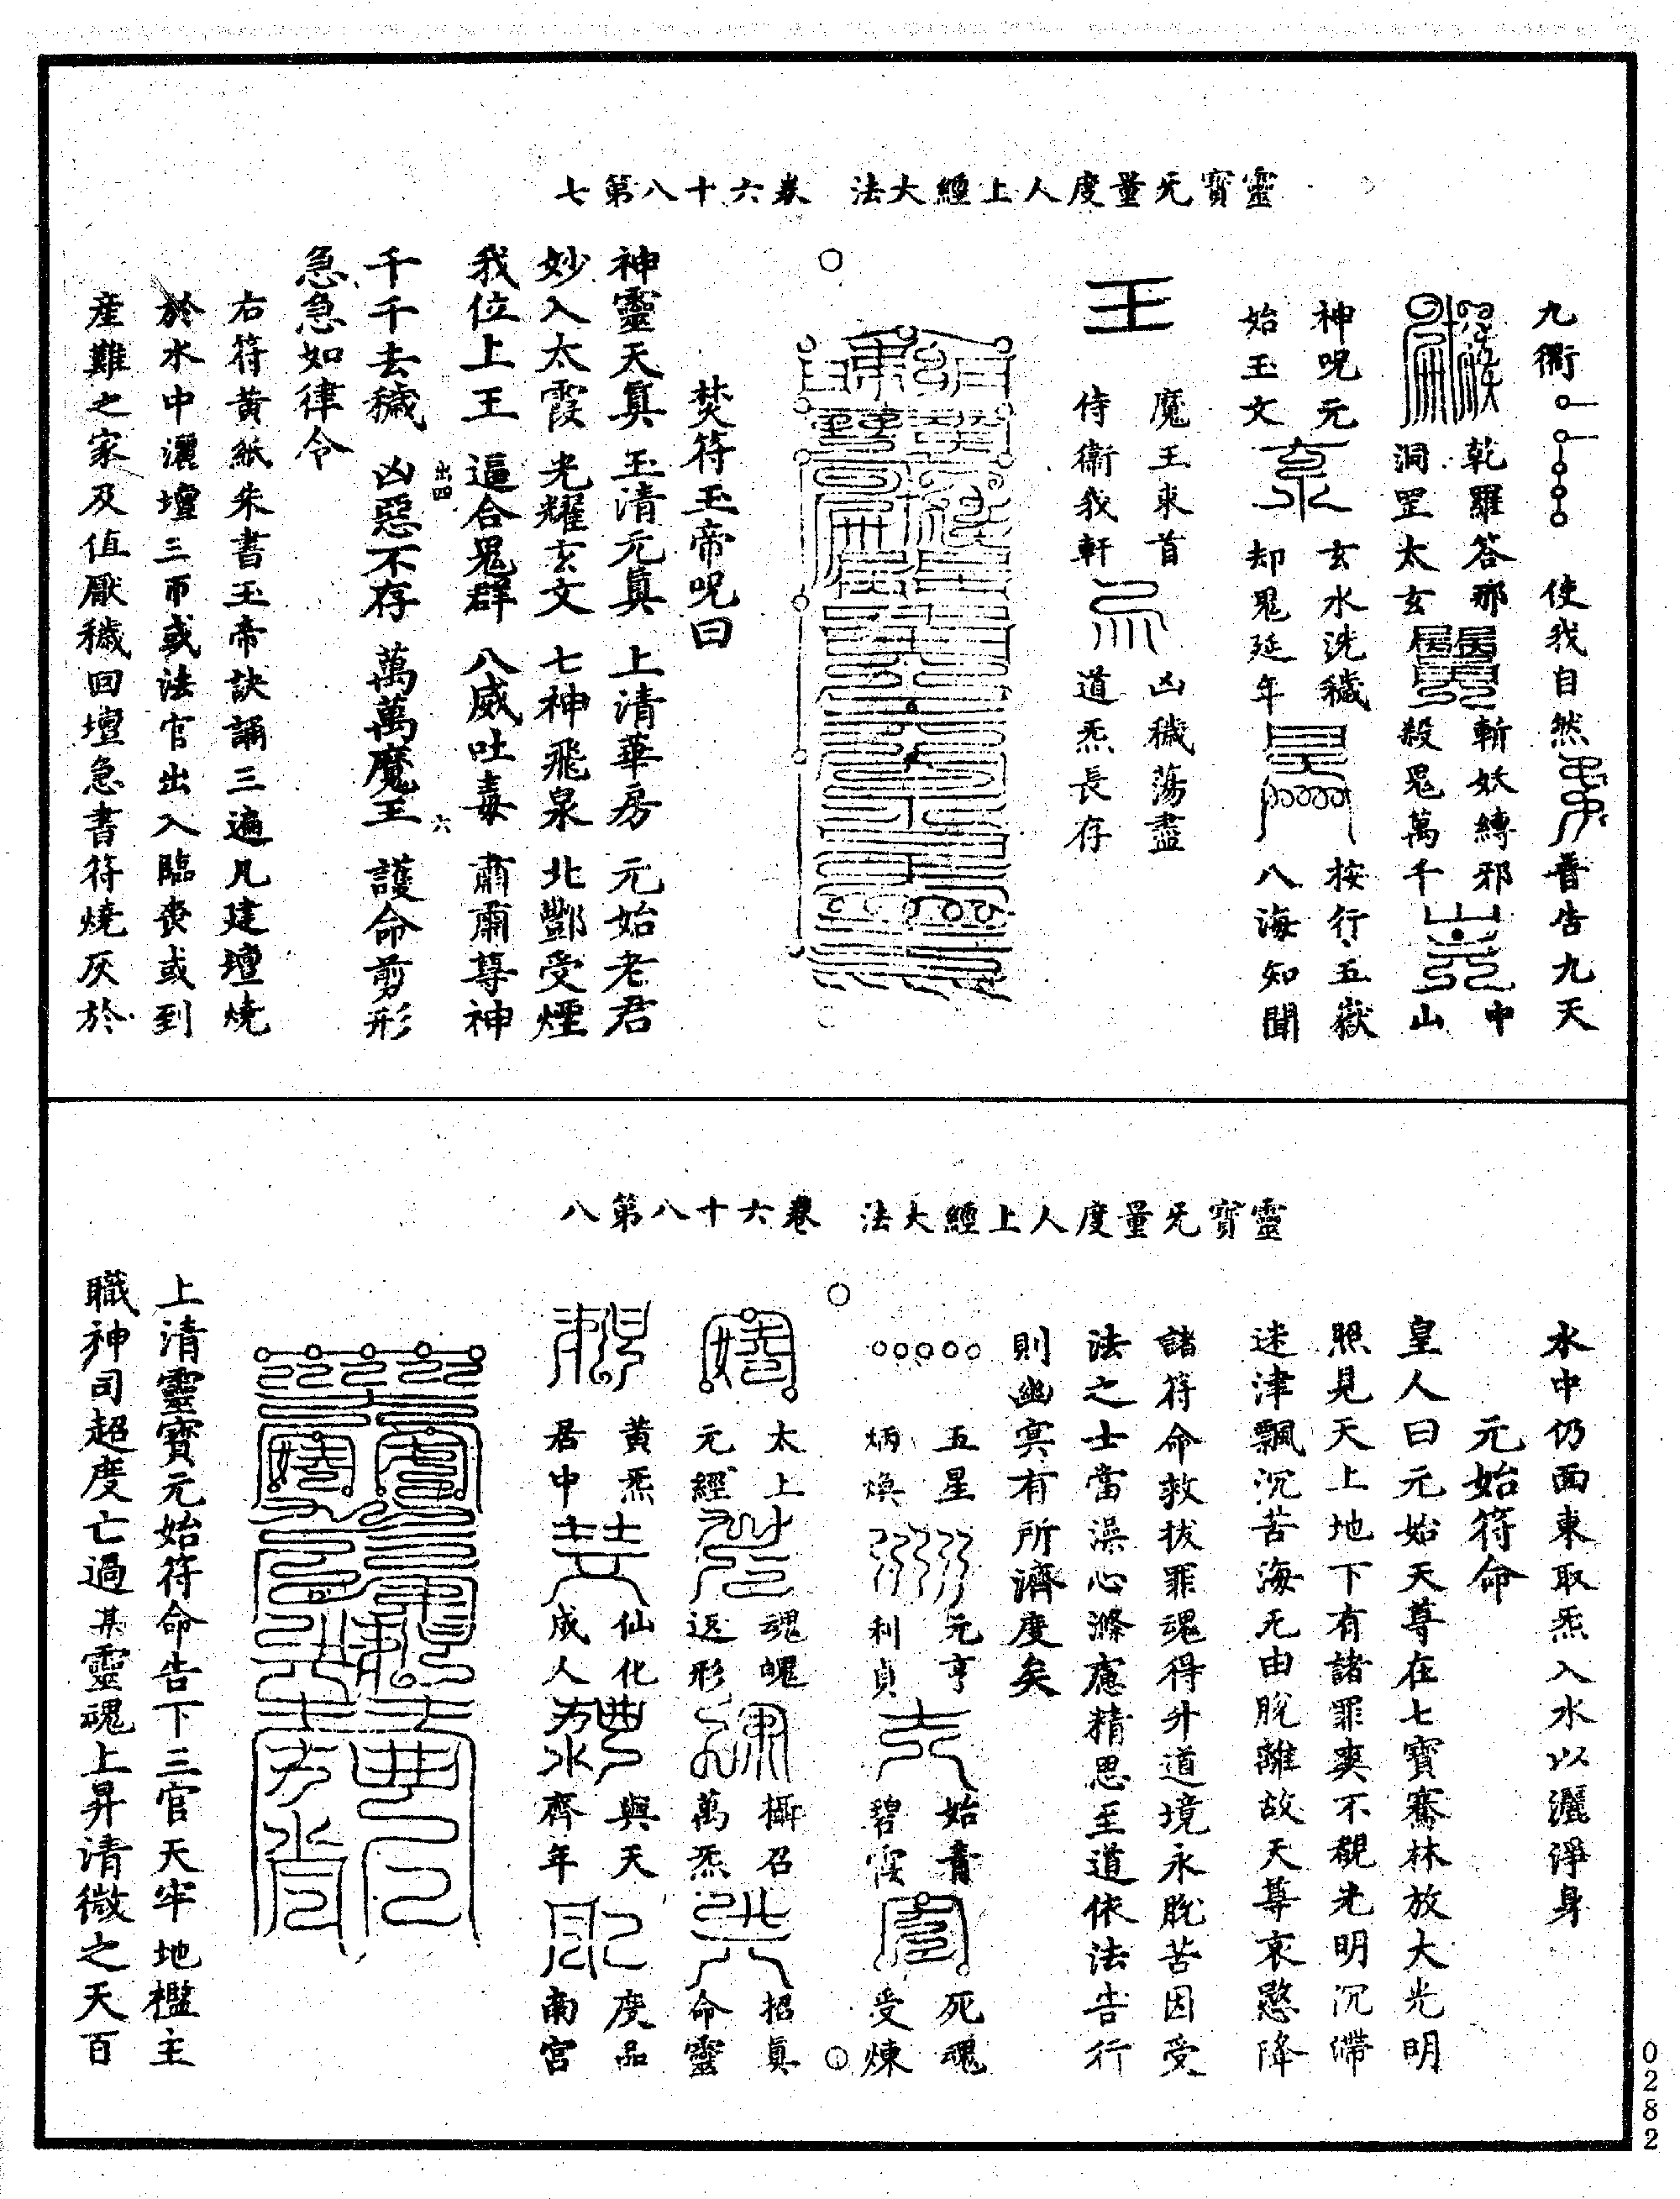 靈寶无量度人上經大法　卷六十八第七
九衢
使我自然
普告九天
乾羅荅那
洞罡太玄
斬妖縛邪
殺鬼萬千
中
山
神呪元
始玉文
玄水洗穢
却鬼延年
按行五嶽
八海知聞
魔王束首
侍衛我軒
凶穢蕩盡
道炁長存
焚符玉帝呪曰
神靈天真　玉清元真　上清華房　元始老君
妙入太霞　光耀玄文　七神飛泉　北酆受煙
我位上王　逼合鬼群　八威吐毒　肅肅尊神
出四
六
千千去穢　凶惡不存　萬萬魔王　護命剪形
急急如律令
右符黃紙朱書玉帝訣誦三遍凡建壇燒
於水中灑壇三帀或法官出入臨喪或到
產難之家及值厭穢回壇急書符燒灰於
靈寶无量度人上經大法　卷六十八第八
水中仍面東取炁入水以灑淨身
元始符命
皇人曰元始天尊在七寶騫林放大光明
照見天上地下有諸罪爽不覩光明沉滯
迷津飄沉苦海无由脫離故天尊哀愍降
諸符命救拔罪魂得升道境永脫苦因受
法之士當澡心滌慮精思至道依法告行
則幽冥有所濟度矣
五星
炳煥
元亨
利貞
始青
碧霞
死魂
受煉
太上
元經
魂魄
返形
攝召
萬炁
招真
命靈
黃炁
居中
仙化
成人
與天
齊年
度品
南宮
上清靈寶元始符命告下三官天牢地檻主
職神司超度亡過某靈魂上昇清微之天百
0282